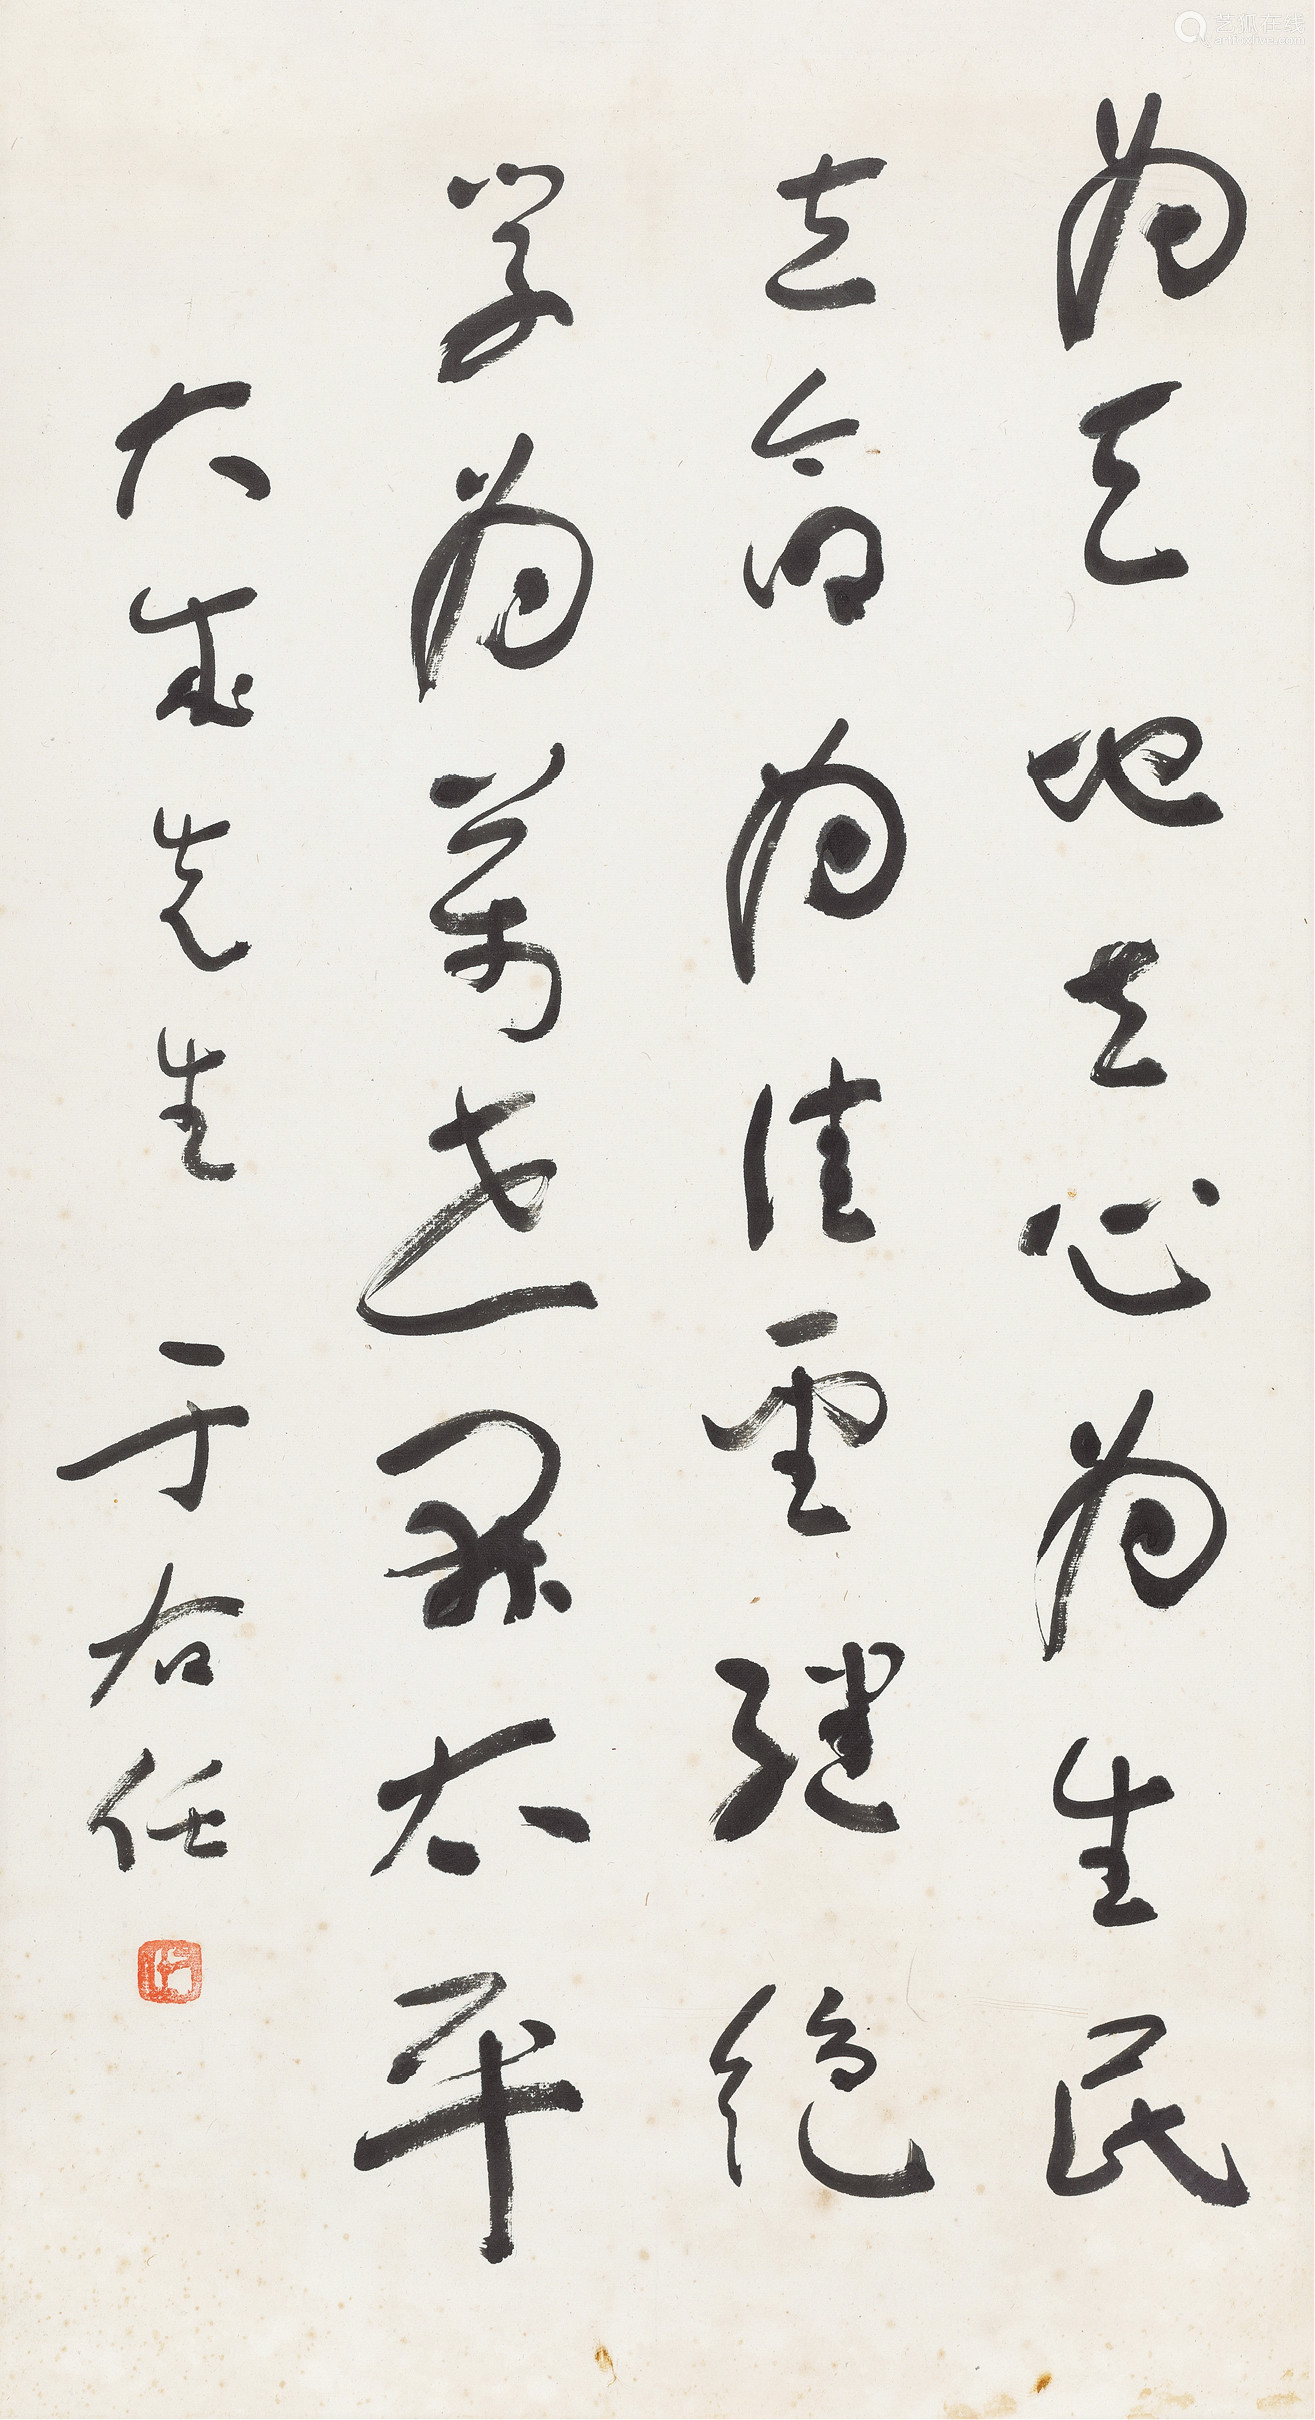 艺狐在线
artfoxlive.com
為天地立心為生民
立命為往聖繼絕
學為萬世開太平
大 先生 于右任